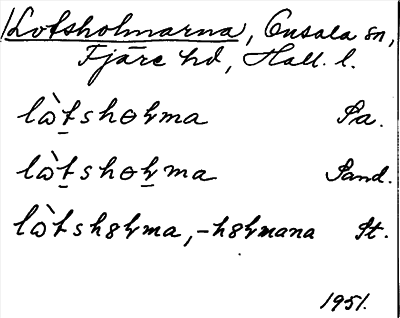 Lotsholmarna, Onsala sn,
Fjäre hd, Hall. l.
lὼt̠shɵɬma Pa.
lὼt̠shɵɬ̠ma Sand.
lὼtshȣɬma, -hȣɬmana St.
1951.